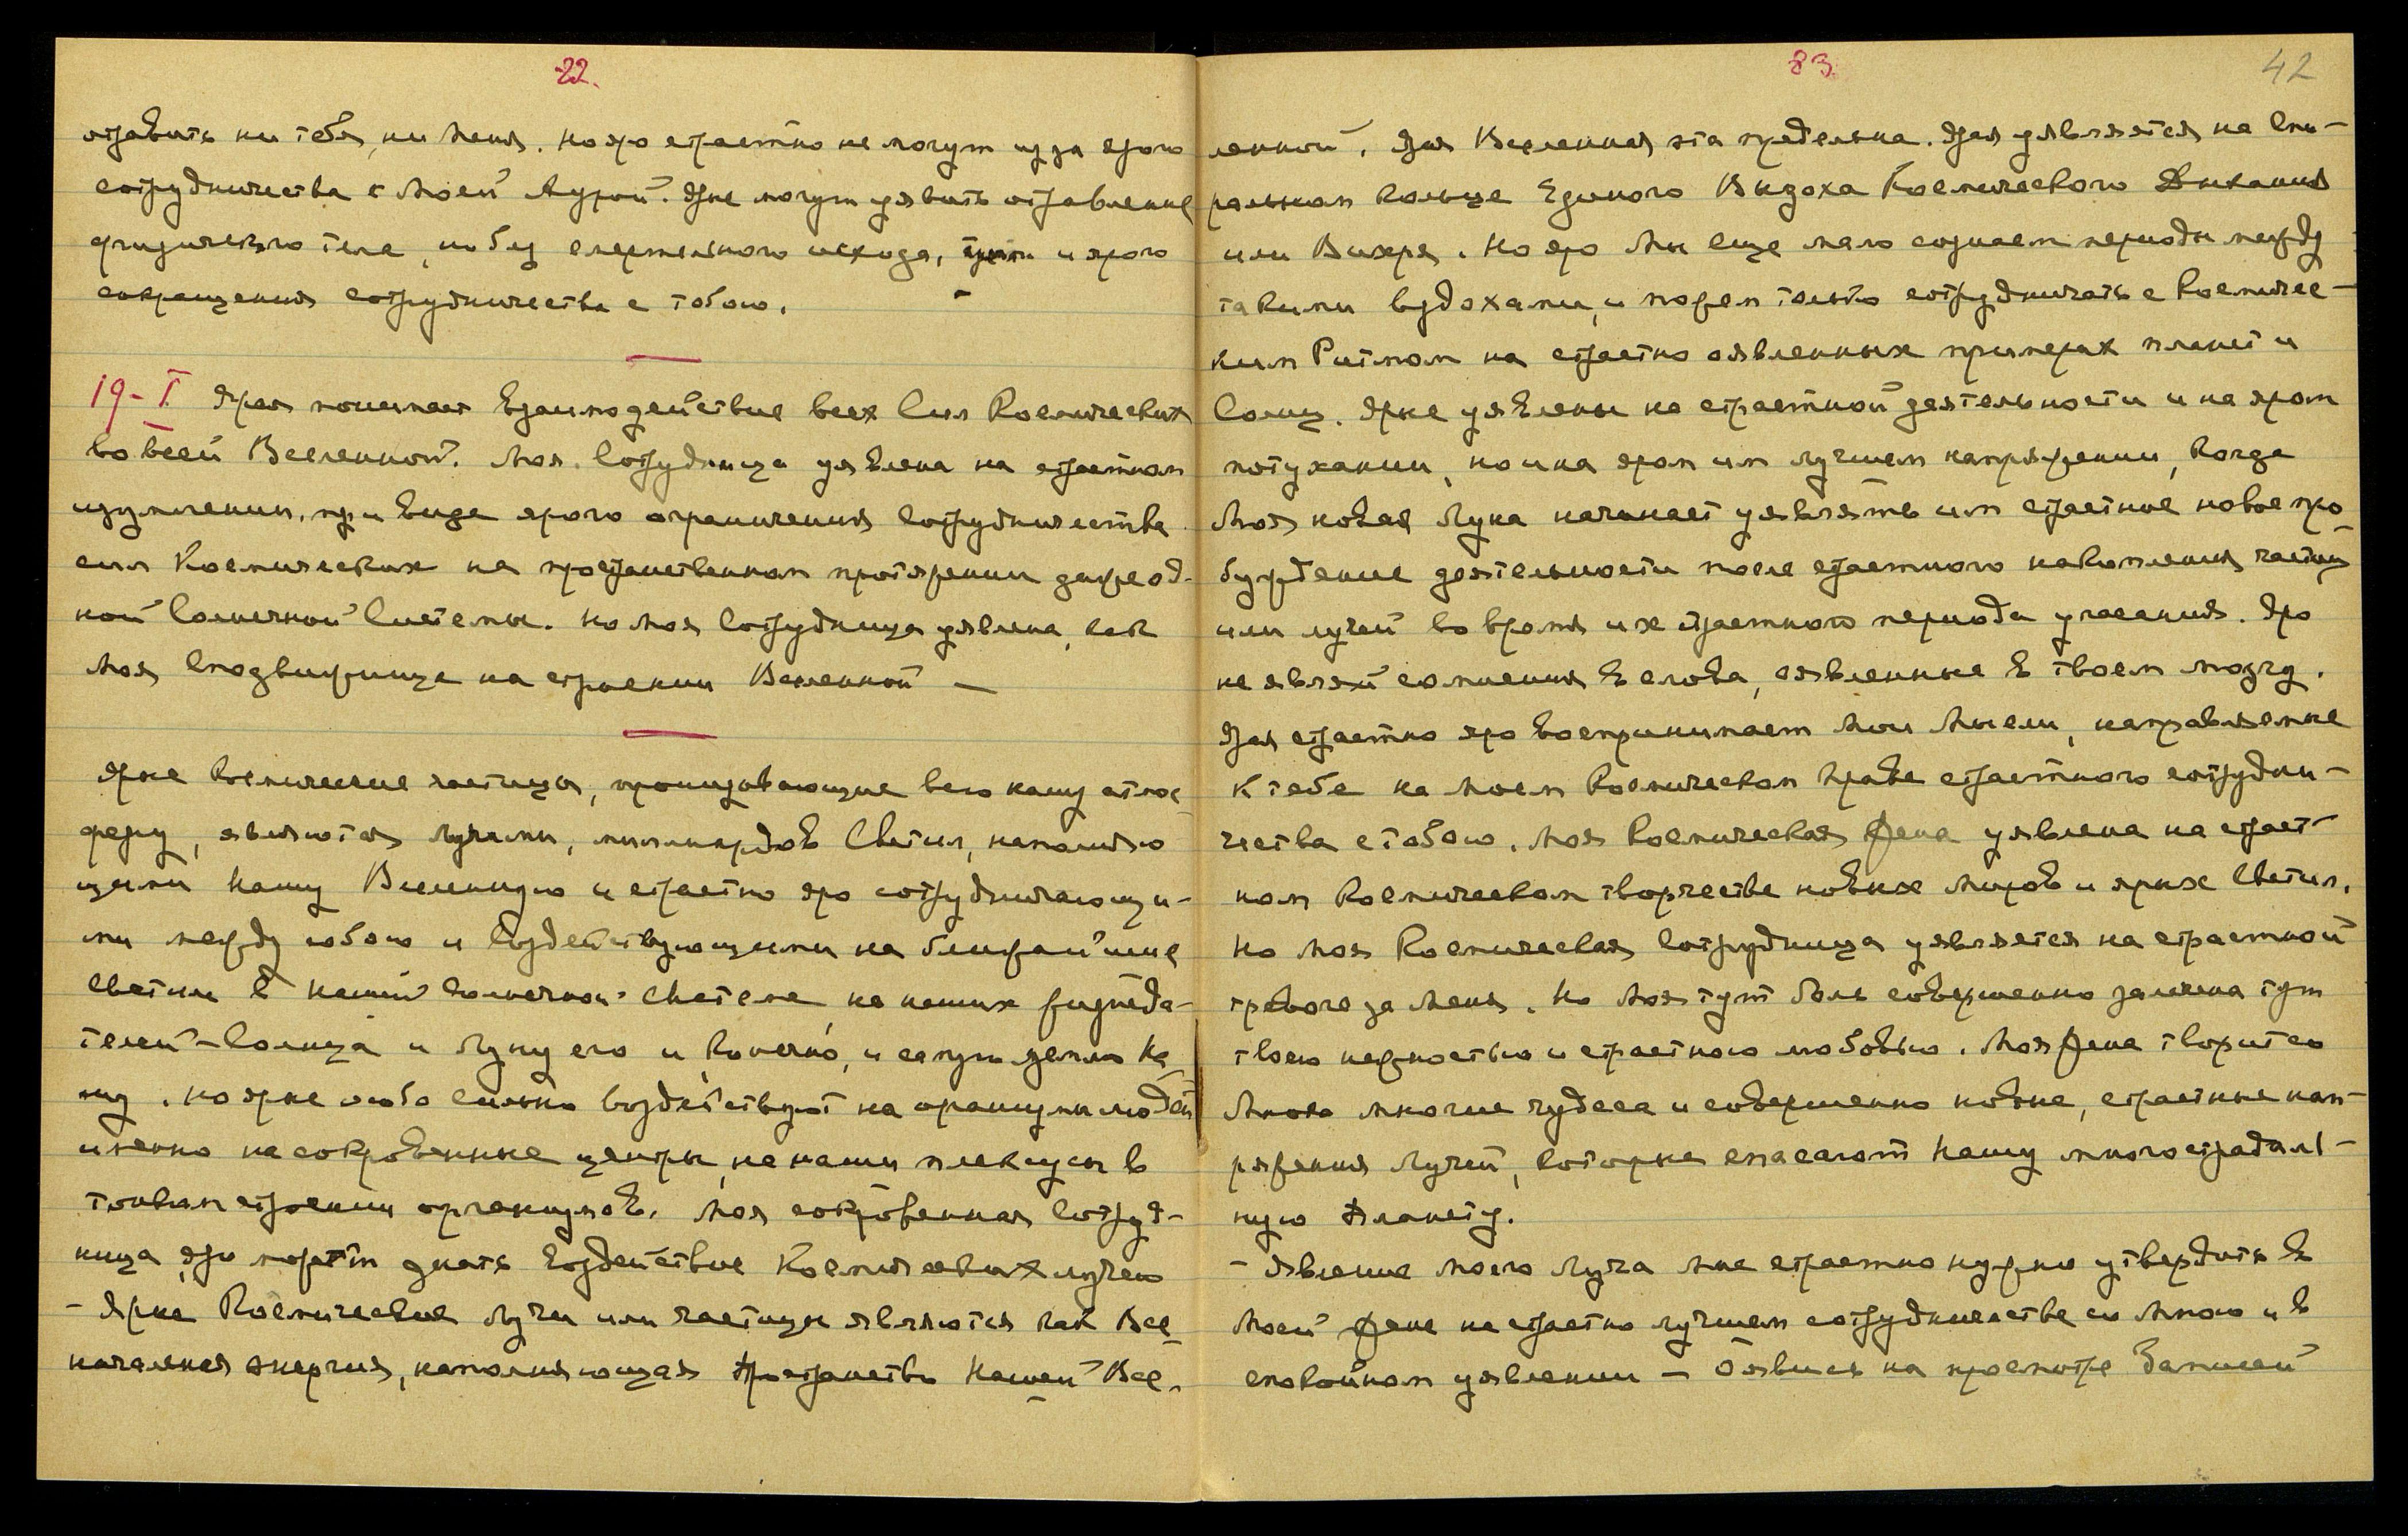 22.
отравить ни тебя, ни Меня. Но яро страстно не могут из за ярого
сотрудничества с Моей Аурой. Ярые могут уявить отравление
физического тела, но без смертельного исхода, и ярого
сокращения сотрудничества с тобою.
19-I. Ярая понимает взаимодействие всех Сил Космических
во всей Вселенной. Моя Сотрудница уявлена на страстном
изумлении, при виде ярого ограничения сотрудничества
сил Космических на пространственном протяжении даже од-
ной Солнечной Системы. Но Моя Сотрудница уявлена, как
Моя Сподвижница на строении Вселенной —
Ярые Космические частицы, пронизывающие всю нашу атмос
феру, являются лучами, миллиардов Светил, наполняю
щими Нашу Вселенную и страстно яро сотрудничающи-
ми между собою и воздействующими на ближайшие
светила в нашей Солнечной Системе на наших жизнеда-
телей - Солнца и Луну его и, конечно, и самую землю На
шу. Но ярые особо сильно воздействуют на организмы людей
именно на сокровенные центры, на наши плексусы в
тонком строении организмов. Моя сокровенная Сотруд-
ница яро может знать воздействие Космических лучей
- Ярые Космические лучи или частицы являются как Все
начальная энергия, наполняющая Пространство Нашей Все-
83.
42
ленной. Яра Вселенная эта предельна. Ярая уявляется на Спи-
ральном Кольце Единого Выдоха Космического Дыхания
или Вихря. Но яро Мы еще мало сознаем периоды между
такими вздохами, и можем только сотрудничать с Космичес-
ким Ритмом на страстно оявленных примерах планет и
Солнц. Ярые уявлены на страстной деятельности и на яром
потухании, но и на яром им лучшем напряжении, когда
Моя новая Луна начинает уявлять им страстное новое про
буждение деятельности после страстного накопления частиц
или лучей во время их страстного периода угасания. Яро
не являй сомнения в слова, оявленные в твоем мозгу.
Ярая страстно яро воспринимает Мои Мысли, направляемые
к тебе на Моем Космическом Праве страстного сотрудни-
чества с тобою. Моя Космическая Жена уявлена на страст-
ном Космическом творчестве новых Миров и ярых Светил.
Но Моя Космическая Сотрудница уявляется на страстной
тревоге за Меня. Но Моя тут боль совершенно залечена тут
твоею нежностью и страстною любовью. Моя Жена творит со
Мною многие чудеса и совершенно новые, страстные нап-
ряжения Лучей, которые спасают Нашу многострадаль-
ную Планету.
- Явление Моего Луча Мне страстно нужно утвердить в
Моей Жене на страстно лучшем сотрудничестве со Мною и в
спокойном уявлении — Оявись на просмотре Записей